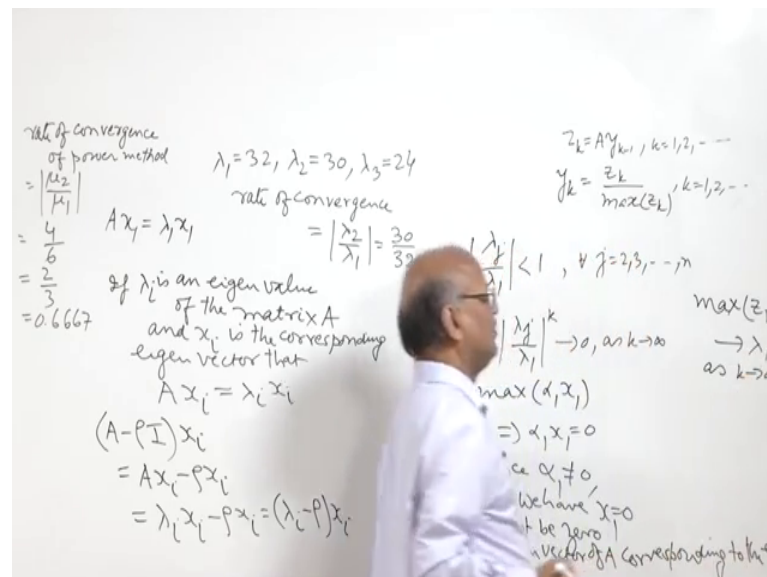 rate of convergence
of power method
= |μ₂/μ₁|
= 4/6
= 2/3
= 0.6667
λ₁=32, λ₂=30, λ₃=24
rate of convergence
= |λ₂/λ₁| = 30/32
Ax₁ = λ₁x₁
If λᵢ is an eigen value
of the matrix A
and xᵢ is the corresponding
eigen vector that
Axᵢ = λᵢxᵢ
(A-ρI)xᵢ
= Axᵢ-ρxᵢ
= λᵢxᵢ-ρxᵢ=(λᵢ-ρ)xᵢ
zₖ=Ayₖ₋₁, k=1,2,---
yₖ = zₖ/max(zₖ), k=1,2,--
|λⱼ/λ₁| < 1, ∀ j=2,3,---,n
|λⱼ/λ₁|ᵏ →0, as k→∞
max(α₁x₁)
=) α₁x₁=0
α₁≠0,
we have, x₁=0
be zero
vector of A corresponding to
max(z
→λ
as k→